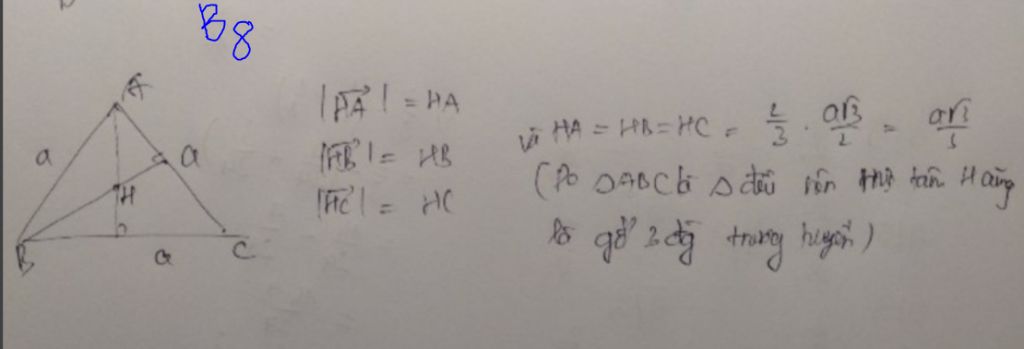 B8
A
a
a
H
B
a
C
|HA→| = HA
|HB→| = HB
|HC→| = HC
và HA = HB = HC = 2/3 . a√3/2 = a√3/3
(Do ΔABC là Δ đều nên tâm H cũng
là gđ 3 đg trung tuyến)